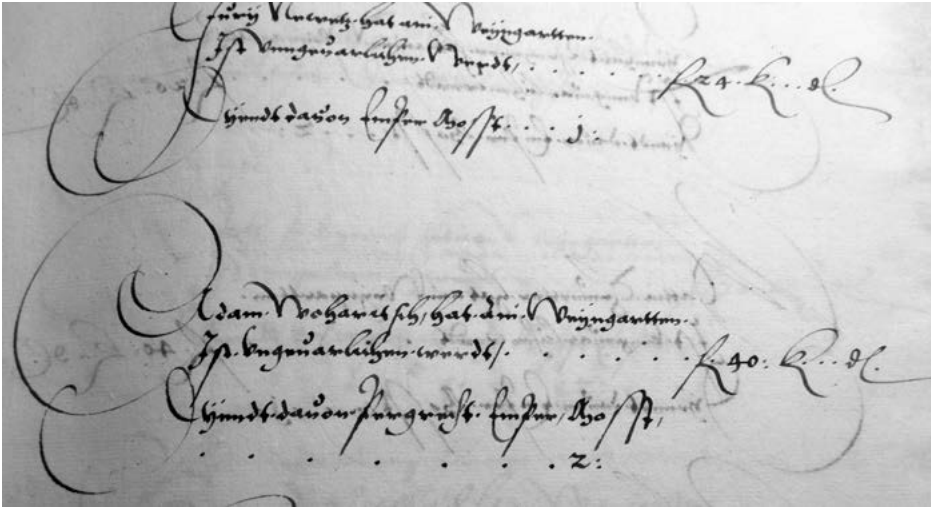 Jury Newetz hat ain Weyngartten.
Ist Vnngeuarlichen Werdt, . . . . . f 24. k . . . dl.
Ihendt dauon Emfer Mosst . . . j.
Adam Woharitsch, hat ain Weyngartten.
Ist. Vngeuarlichen werdt, . . . . . . f. 40: k. . . dl.
dauon pergrecht. Emfer, Mosst,
. . . . . . . 2: